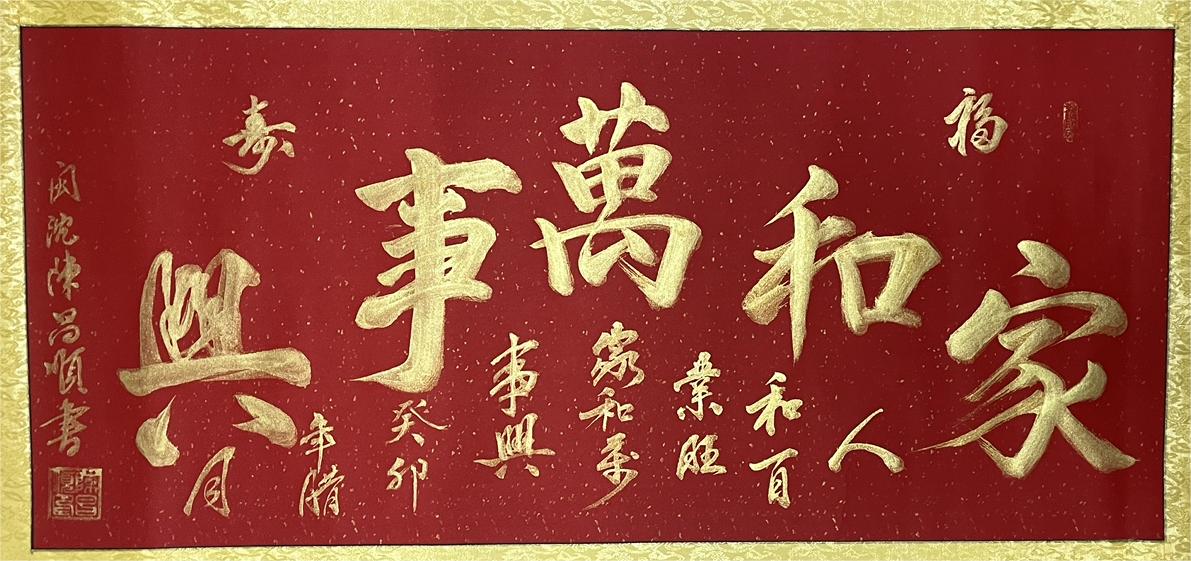 福
家和萬事興
壽
人
和百
業旺
家和万
事興
癸卯
年腊
月
闽 陈昌順書